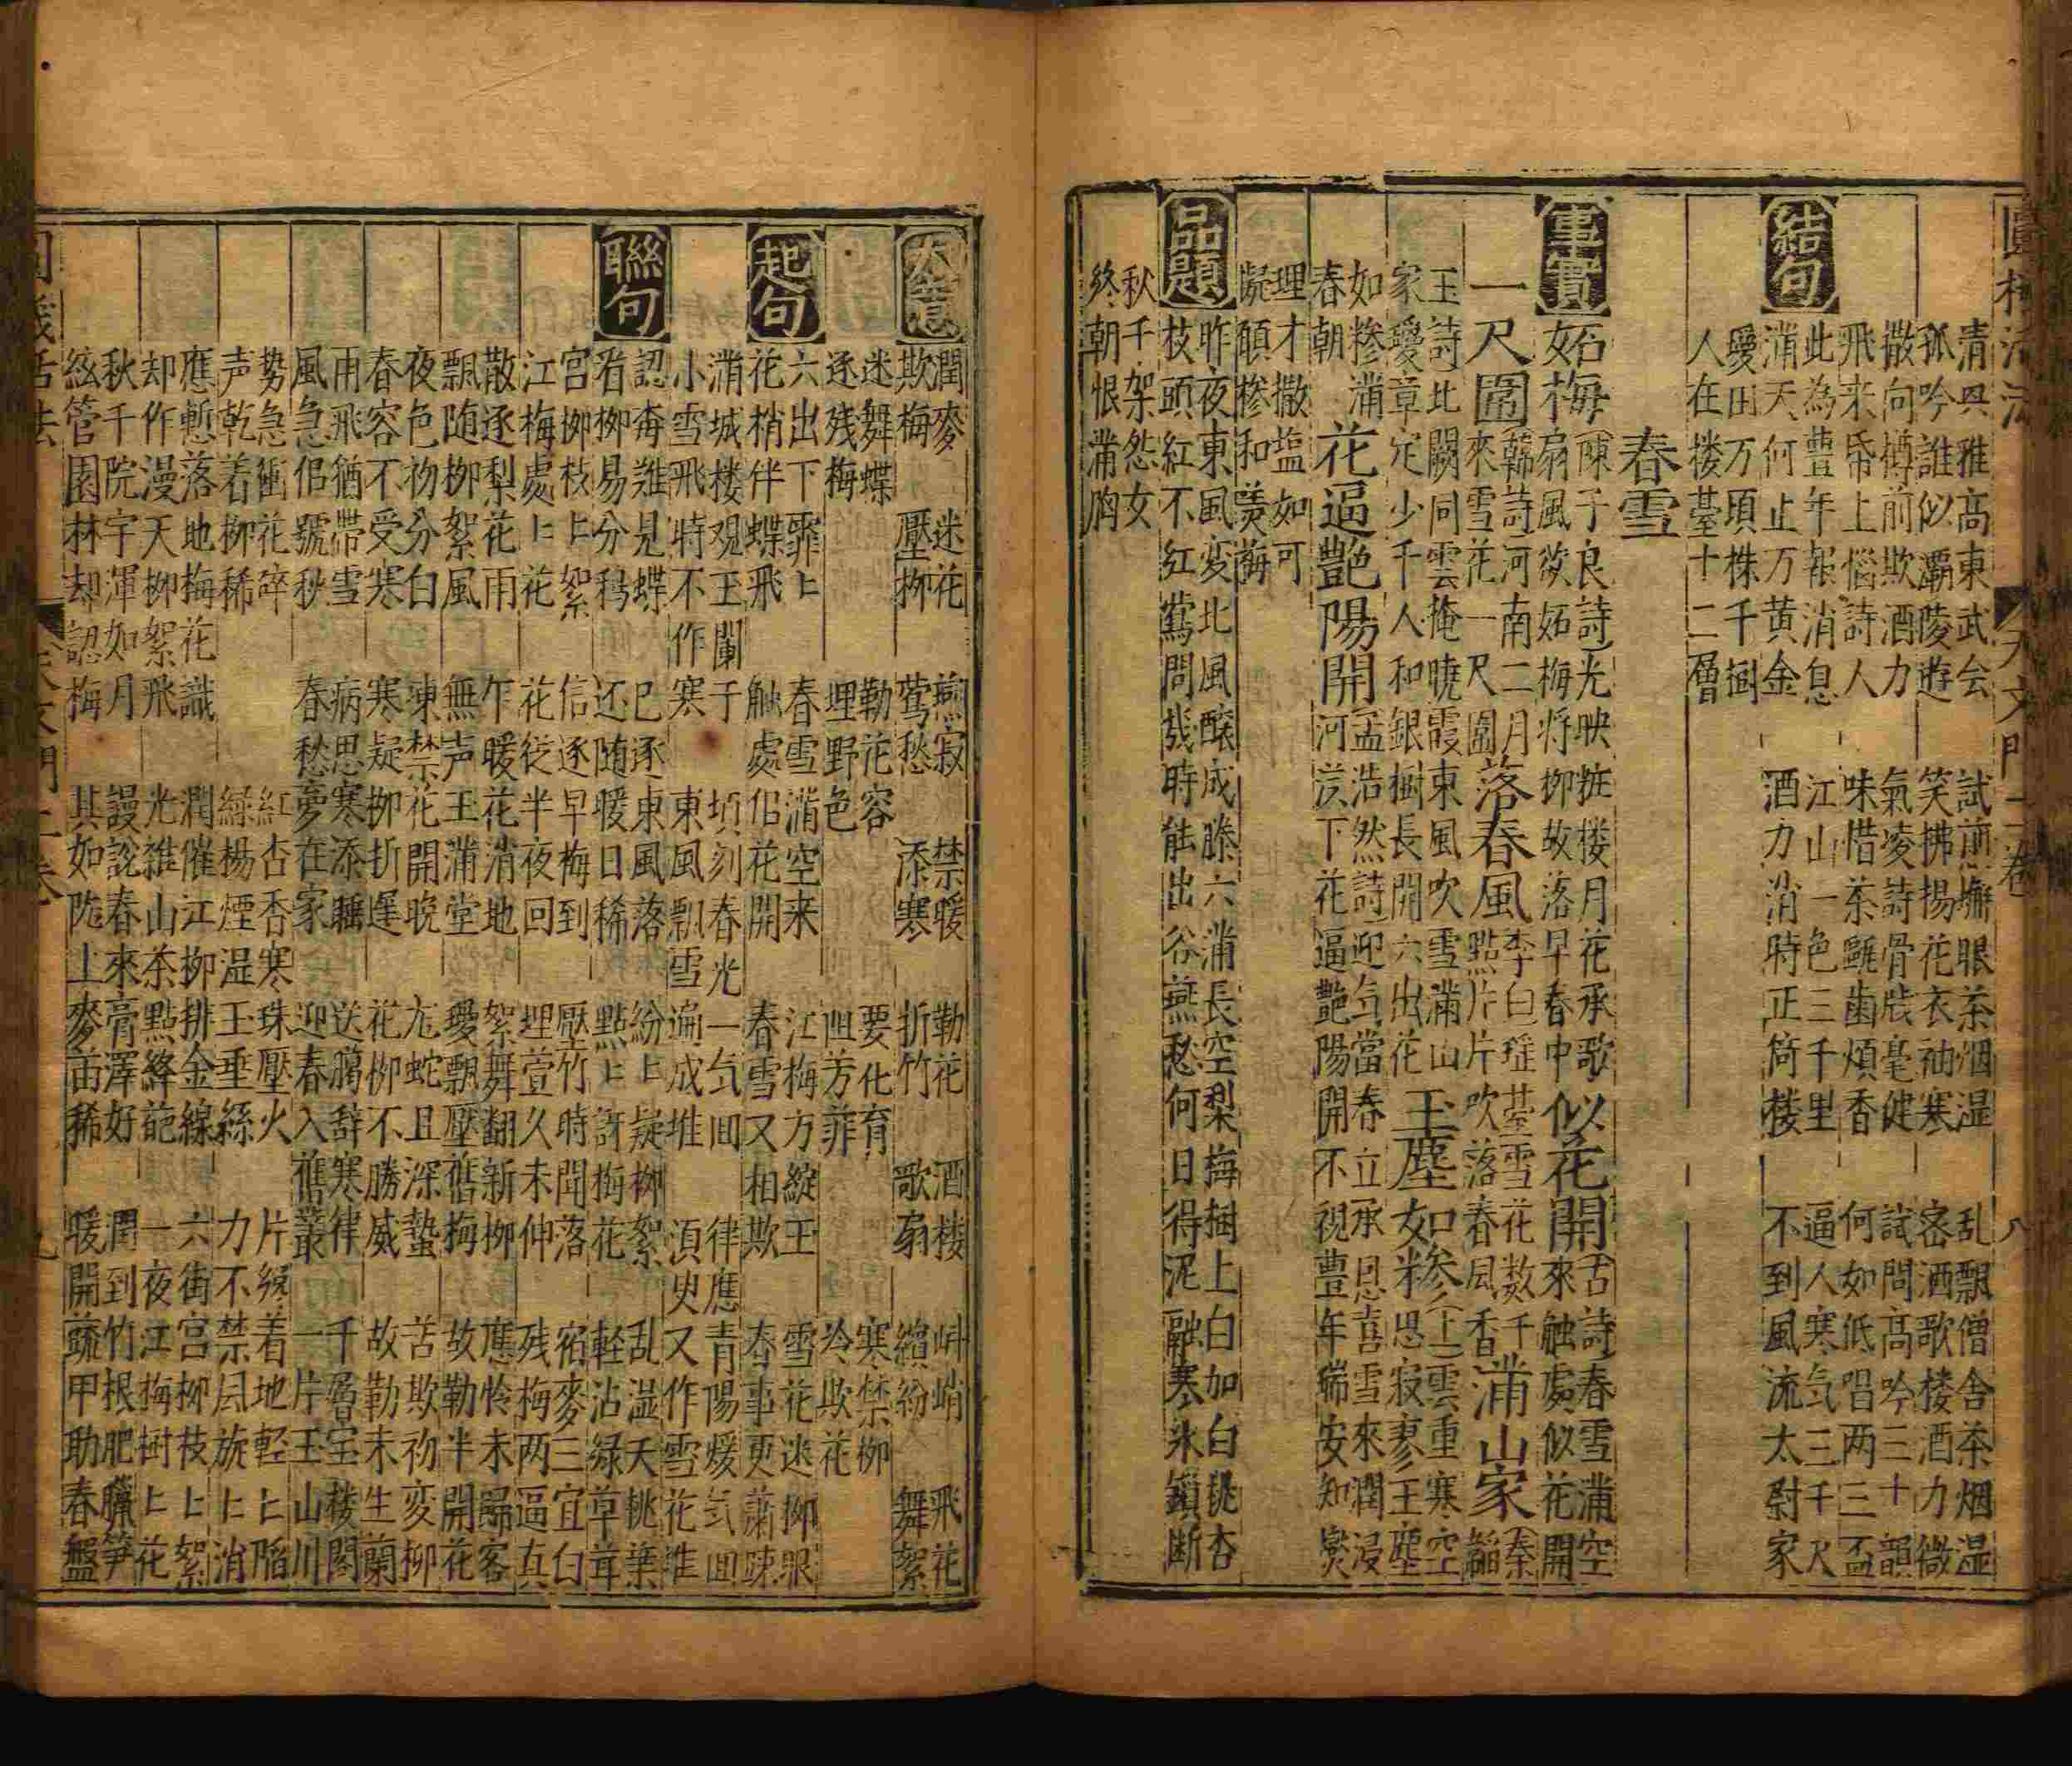 圓機活法 天文門二卷 八
清興雅高東武会 試煎 眼茶烟湿 乱飄僧舍茶烟湿
孤吟誰似灞陵遊 笑拂揚花衣袖寒 密洒歌楼酒力微
撒向樽前欺酒力 氣凌詩骨 毫健 試問高吟三十韻
飛来帋上惱詩人 味惜茶甌歯煩香 何如低唱两三盃
此為豊年報消息 江山一色三千里 逼人寒気三千尺
結句
滿天何止万黄金 酒力消時正 楼 不到風流太尉家
愛田万頃株千樹
人在楼臺十二層
春雪
事實
妬梅
陳子良詩光映粧楼月花承歌
扇風欲妬梅将柳故落早春中
似花開
古詩春雪滿空
來触處似花開
一尺圍
韓詩河南二月
來雪花一尺圍
落春風
李白瑶臺雪花数千
點片片吹落春風香
滿山家
秦韜
玉詩北闕同雲掩曉霞東風吹雪滿山
家愛章定少千人和銀樹長開六出花
玉塵如糝
仝上雲重寒空
思寂寥玉塵
如糝滿
春朝
花逼艶陽開
孟浩然詩迎气當春立承恩喜雪來潤浸
河漢下花逼艶陽開不視豊年瑞安知爕
理才撒塩如可
擬願慘和羮梅
品題
昨夜東風変北風釀成滕六滿長空梨梅樹上白加白桃杏
枝頭紅不红鶯問幾時能出谷燕愁何日得泥融寒氷鎖断
秋千架怨女
終朝恨滿胸
大意
潤麥 迷花 燕寂 禁暖 勒花 酒楼 峭 飛花
欺梅 壓柳 鶯愁 添寒 折竹 歌扇 繽紛 舞絮
迷舞蝶 勒花容 要化育 寒禁柳
逐残梅 埋野色 阻芳菲 冷欺花
起句
六出下霏ヒ 春雪滿空来 江梅方綻玉 雪花迷柳眼
花梢伴蝶飛 触處佀花開 春雪又相欺 春事更蕭踈
滿城楼观玉闌干 頃刻春光一気囬 律應青陽煖気囬
小雪飛時不作寒 東風飄雪遍成堆 湏臾又作雪花堆
聯句
認毎難見蝶 已逐東風落 紛ヒ疑柳絮 乱湿天桃葉
看柳易分鵶 还随暖日稀 點ヒ訝梅花 軽沾緑草茸
宮柳枝ヒ絮 信逐早梅到 壓竹時聞落 宿麥三宜白
江梅處ヒ花 花従半夜回 埋萱久未伸 残梅两逼真
散逐梨花雨 乍暖花消地 絮舞翻新柳 應怜未歸客
飄随柳絮風 無声玉滿堂 愛飄壓舊梅 故勒半開花
夜色初分白 凍禁花開晚 尨蛇且深蟄 苦欺初変柳
春容不受寒 寒疑柳折遲 花柳不勝威 故勒未生蘭
雨飛猶帶雪 病思寒添睡 送臈辞寒律 千層宝楼閣
風急佀號秋 春愁夢在家 迎春入舊叢 一片玉山川
势急衝花碎 紅杏香寒珠壓火 片 着地軽ヒ陷
声乾着柳稀 緑楊煙湿玉垂絲 力不禁風旋ヒ消
應慙落地梅花識 潤催江柳排金線 六街宮柳枝ヒ絮
却作漫天柳絮飛 光雑山茶點絳葩 一夜江梅樹ヒ花
秋千院宇渾如月 謾說春來膏澤好 潤到竹根肥臘笋
絃管園林却認梅 其如陇上麥苗稀 暖開蔬甲助春盤
圓機活法 天文門二卷 九